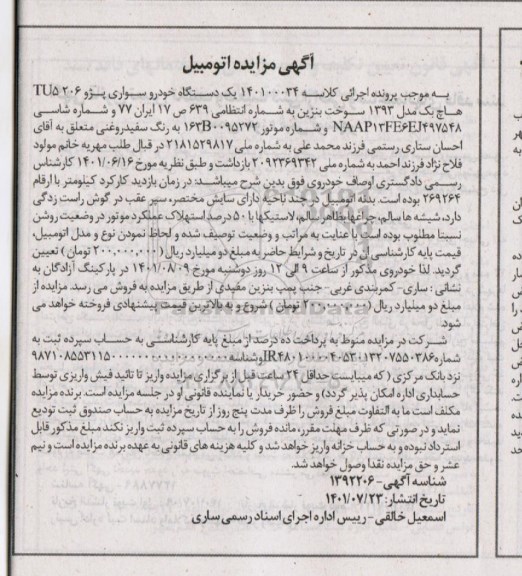 آگهی مزایده اتومبیل
به موجب پرونده اجرائی کلاسه ۱۴۰۱۰۰۰۳۴ یک دستگاه خودرو سواری پژو ۲۰۶ TU۵
هاچ بک مدل ۱۳۹۳ سوخت بنزین به شماره انتظامی ۶۳۹ ص ۱۷ ایران ۷۷ و شماره شاسی
NAAP۱۳FE۶EJ۴۹۷۵۴۸ و شماره موتور ۱۶۳B۰۰۹۵۲۷۲ به رنگ سفیدروغنی متعلق به آقای
احسان ستاری رستمی فرزند محمد علی به شماره ملی ۲۱۸۱۵۲۹۸۱۷ در قبال طلب مهریه خانم مولود
فلاح نژاد فرزند احمد به شماره ملی ۲۰۹۲۳۶۹۳۴۲ بازداشت و طبق نظریه مورخ ۱۴۰۱/۰۶/۱۶ کارشناس
رسمی دادگستری اوصاف خودروی فوق بدین شرح میباشد: در زمان بازدید کارکرد کیلومتر با ارقام
۲۶۹۲۶۴ بوده است. بدنه اتومبیل در چند ناحیه دارای سایش مختصر، سپر عقب در گوش راست زدگی
دارد، شیشه ها سالم، چراغها بظاهر سالم، لاستیکها با ۵۰ درصد استهلاک عملکرد موتور در وضعیت روشن
نسبتا مطلوب بوده است با عنایت به مراتب و وضعیت توصیف شده و لحاظ نمودن نوع و مدل اتومبیل،
قیمت پایه کارشناسی آن در تاریخ و شرایط حاضر به مبلغ دو میلیارد ریال (۲۰۰,۰۰۰,۰۰۰ تومان) تعیین
گردید. لذا خودروی مذکور از ساعت ۹ الی ۱۲ روز دوشنبه مورخ ۱۴۰۱/۰۸/۰۹ در پارکینگ آزادگان به
نشانی : ساری- کمربندی غربی- جنب پمپ بنزین مفیدی از طریق مزایده به فروش می رسد. مزایده از
مبلغ دو میلیارد ریال (۲۰۰,۰۰۰,۰۰۰ تومان ) شروع و به بالاترین قیمت پیشنهادی فروخته خواهد می
شود.
شرکت در مزایده منوط به پرداخت ده درصد از مبلغ پایه کارشناسی به حساب سپرده ثبت به
وشناسه
نزد بانک مرکزی ( که میبایست حداقل ۲۴ ساعت قبل از برگزاری مزایده واریز تا تائید فیش واریزی توسط
حسابداری اداره امکان پذیر گردد) و حضور خریدار یا نماینده قانونی او در جلسه مزایده است. برنده مزایده
مکلف است ما به التفاوت مبلغ فروش را ظرف مدت پنج روز از تاریخ مزایده به حساب صندوق ثبت تودیع
نماید و در صورتی که ظرف مهلت مقرر، مانده فروش را به حساب سپرده ثبت واریز نکند مبلغ مذکور قابل
استرداد نبوده و به حساب خزانه واریز خواهد شد و کلیه هزینه های قانونی به عهده برنده مزایده است و نیم
عشر و حق مزایده نقدا وصول خواهد شد.
شناسه آگهی- ۱۳۹۲۲۰۶
تاریخ انتشار: ۱۴۰۱/۰۷/۲۳
اسمعیل خالقی- رییس اداره اجرای اسناد رسمی ساری